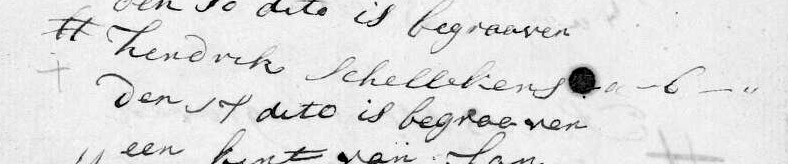 den 10 dito is begraaven
hendrik Schellekens a - 6 - "
Den 14 dito is begraaven
een kint van Jan